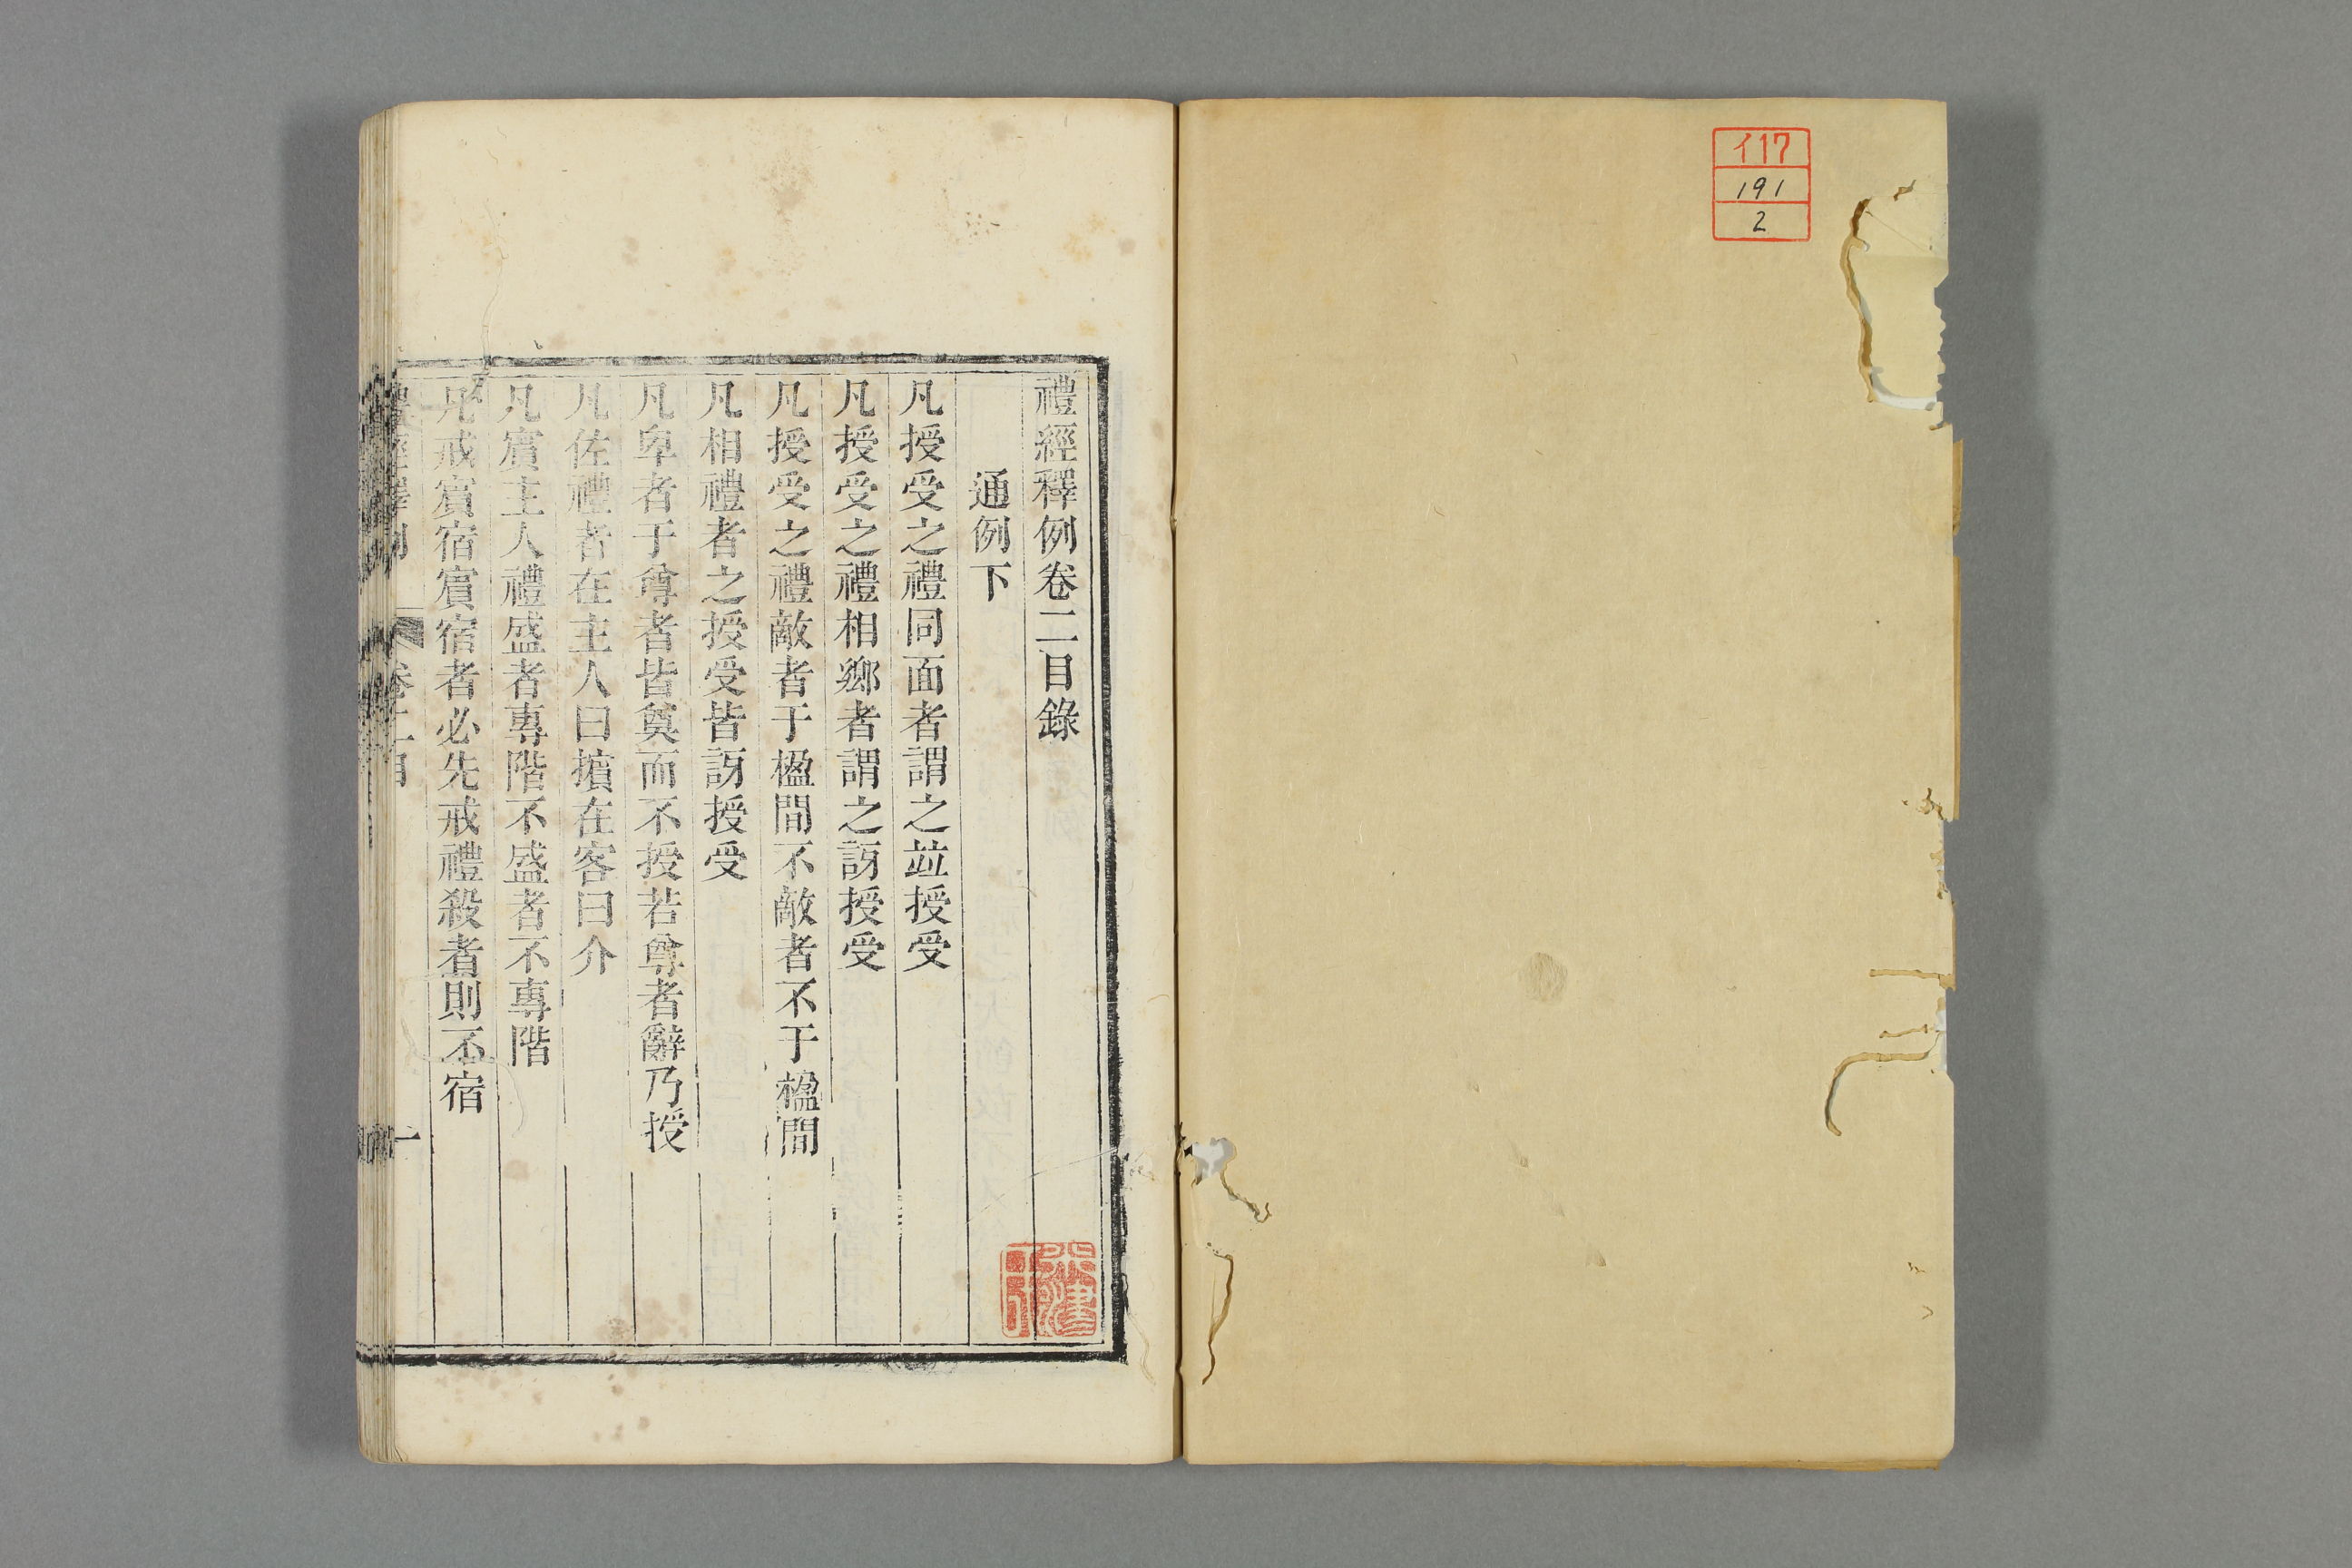 イ17
191
2
禮經釋例卷二目錄
通例下
凡授受之禮同面者謂之竝授受
凡授受之禮相鄉者謂之訝授受
凡授受之禮敵者于楹間不敵者不于楹間
凡相禮者之授受皆訝授受
凡卑者于尊者皆奠而不授若尊者辭乃授
凡佐禮者在主人曰擯在客曰介
凡賓主人禮盛者專階不盛者不專階
凡戒賓宿賓宿者必先戒禮殺者則不宿
禮經釋例 卷二目 一